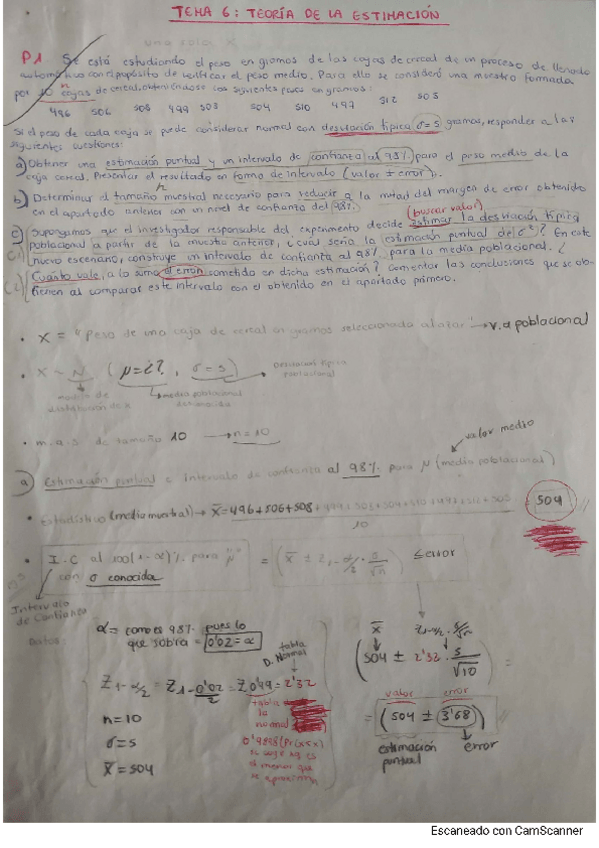 TEMA 6: TEORÍA DE LA ESTIMACIÓN
una sola X
P1 Se está estudiando el peso en gramos de las cajas de cereal de un proceso de llenado
automático con el propósito de verificar el peso medio. Para ello se consideró una muestra formada
por 10 cajas de cereal, obteniéndose los siguientes pesos en gramos:
n
496 506 508 499 503 504 510 497 512 505
Si el peso de cada caja se puede considerar normal con desviación típica σ=5 gramos, responder a las
siguientes cuestiones:
a) Obtener una estimación puntual y un intervalo de confianza al 98% para el peso medio de la
caja cereal. Presentar el resultado en forma de intervalo (valor ± error).
n
b) Determinar el tamaño muestral necesario para reducir a la mitad del margen de error obtenido
en el apartado anterior con un nivel de confianza del 98%.
(buscar valor)
c) Supongamos que el investigador responsable del experimento decide estimar la desviación típica
c1) poblacional a partir de la muestra anterior, ¿cual sería la estimación puntual de σ²? En este
nuevo escenario, construye un intervalo de confianza al 98% para la media poblacional. ¿
c2) Cuánto vale, a lo sumo el error cometido en dicha estimación? Comentar las conclusiones que se ob-
tienen al comparar este intervalo con el obtenido en el apartado primero.
• X = "Peso de una caja de cereal en gramos seleccionada al azar" → v.a poblacional
• X ~ N (μ=¿?, σ=5) → Desviación típica poblacional
modelo de distribución de X
media poblacional
• m.a.s de tamaño 10 → n=10
valor medio
a) Estimación puntual e intervalo de confianza al 98% para μ (media poblacional)
• Estadístico (media muestral) → x̄ = 496+506+508+499+503+504+510+497+512+505 / 10 = 504
• I.C al 100(1-α)% para "μ" con σ conocida = (x̄ ± z1-α/2 · σ/√n) ≤ error
Intervalo de Confianza
Datos:
α = como es 98% pues lo
que sobra = 0'02 = α
tabla D. Normal
Z1-α/2 = Z1-0'02/2 = Z0'99 = 2'32
tabla
la
normal
n=10
σ=5
x̄=504
0'9898 (Pr(X≤x)
se coge
el menor que
se aproxima
x̄ z1-α/2 · σ/√n
(504 ± 2'32 · 5/√10) =
valor error
= (504 ± 3'68)
estimación puntual
error
Escaneado con CamScanner